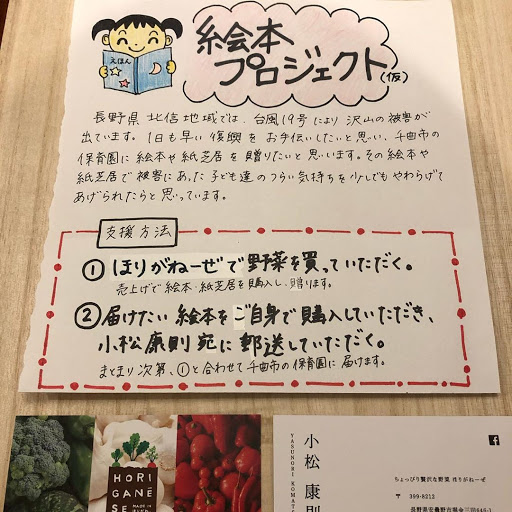 えほん
絵本
プロジェクト(仮)
長野県北信地域では、台風19号により沢山の被害が
出ています。1日も早い復興をお手伝いしたいと思い、千曲市の
保育園に絵本や紙芝居を贈りたいと思います。その絵本や
紙芝居で被害にあった子ども達のつらい気持ちを少しでもやわらげて
あげられたらと思っています。
支援方法
① ほりがねーぜで野菜を買っていただく。
売上げで絵本・紙芝居を購入し、贈ります。
② 届けたい絵本をご自身で購入していただき、
小松康則宛に郵送していただく。
まとまり次第、①と合わせて千曲市の保育園に届けます。
HORI
GANE
SE
MADE IN
小松 康則
YASUNORI KOMATS
ちょっぴり贅沢な野菜 ほりがねーぜ
〒 399-8212
長野県安曇野市堀金三田